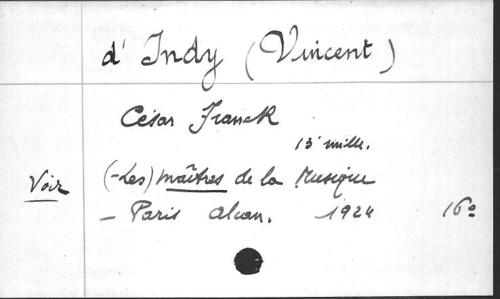 d' Indy (Vincent)
César Franck
13e mille.
Voir (-Les) maîtres de la Musique
- Paris Alcan. 1924 16o